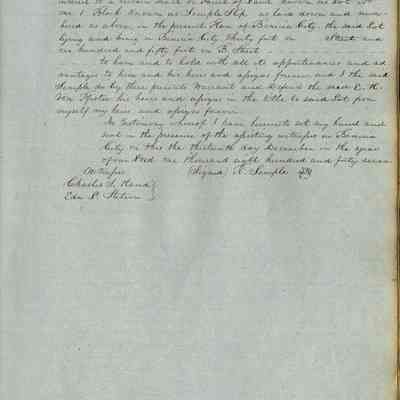 interest to a certain share or Parcel of Land known as Lot No
one 1. Block known as Semple Slip, as laid down and num-
bered as above, in the present Plan of Benicia City. the said Lot
lying and being in Benicia City thirty feet on Street and
one hundred and fifty feet on B. Street.
to have and to hold with all its appurtenances and ad
vantages to him and his heirs and assigns forever and I the said
Semple do by these presents Warrant and Defend the said E. H.
Von Pfister his heirs and assigns in the title to said Lot from
myself my heirs and assigns forever.
In testimony whereof I have hereunto set my hand and
seal in the presence of the assisting witnesses in Benicia
City on this the thirteenth day December in the year
of our Lord one thousand eight hundred and forty seven
Witness (Signed) R. Semple
Charles S. Hand
Edw S.